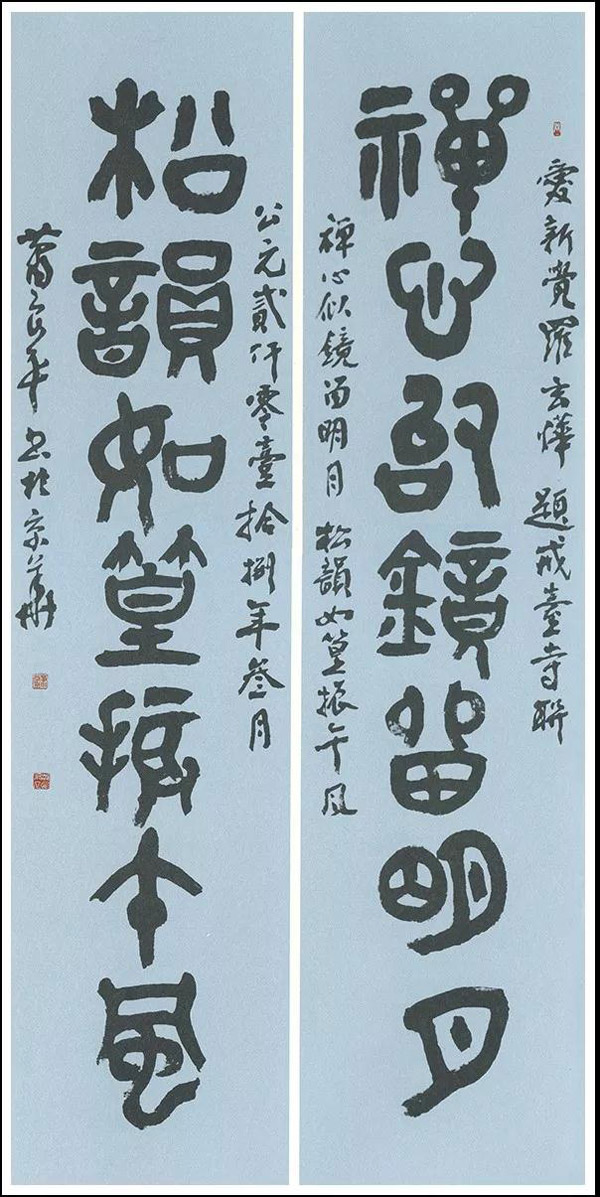 愛新覺羅玄燁 題戒臺寺聯
禪心似鏡留明月
禪心似鏡留明月 松韻如篁振午風
公元貳仟零壹拾捌年叁月
松韻如篁振午風
書於京華